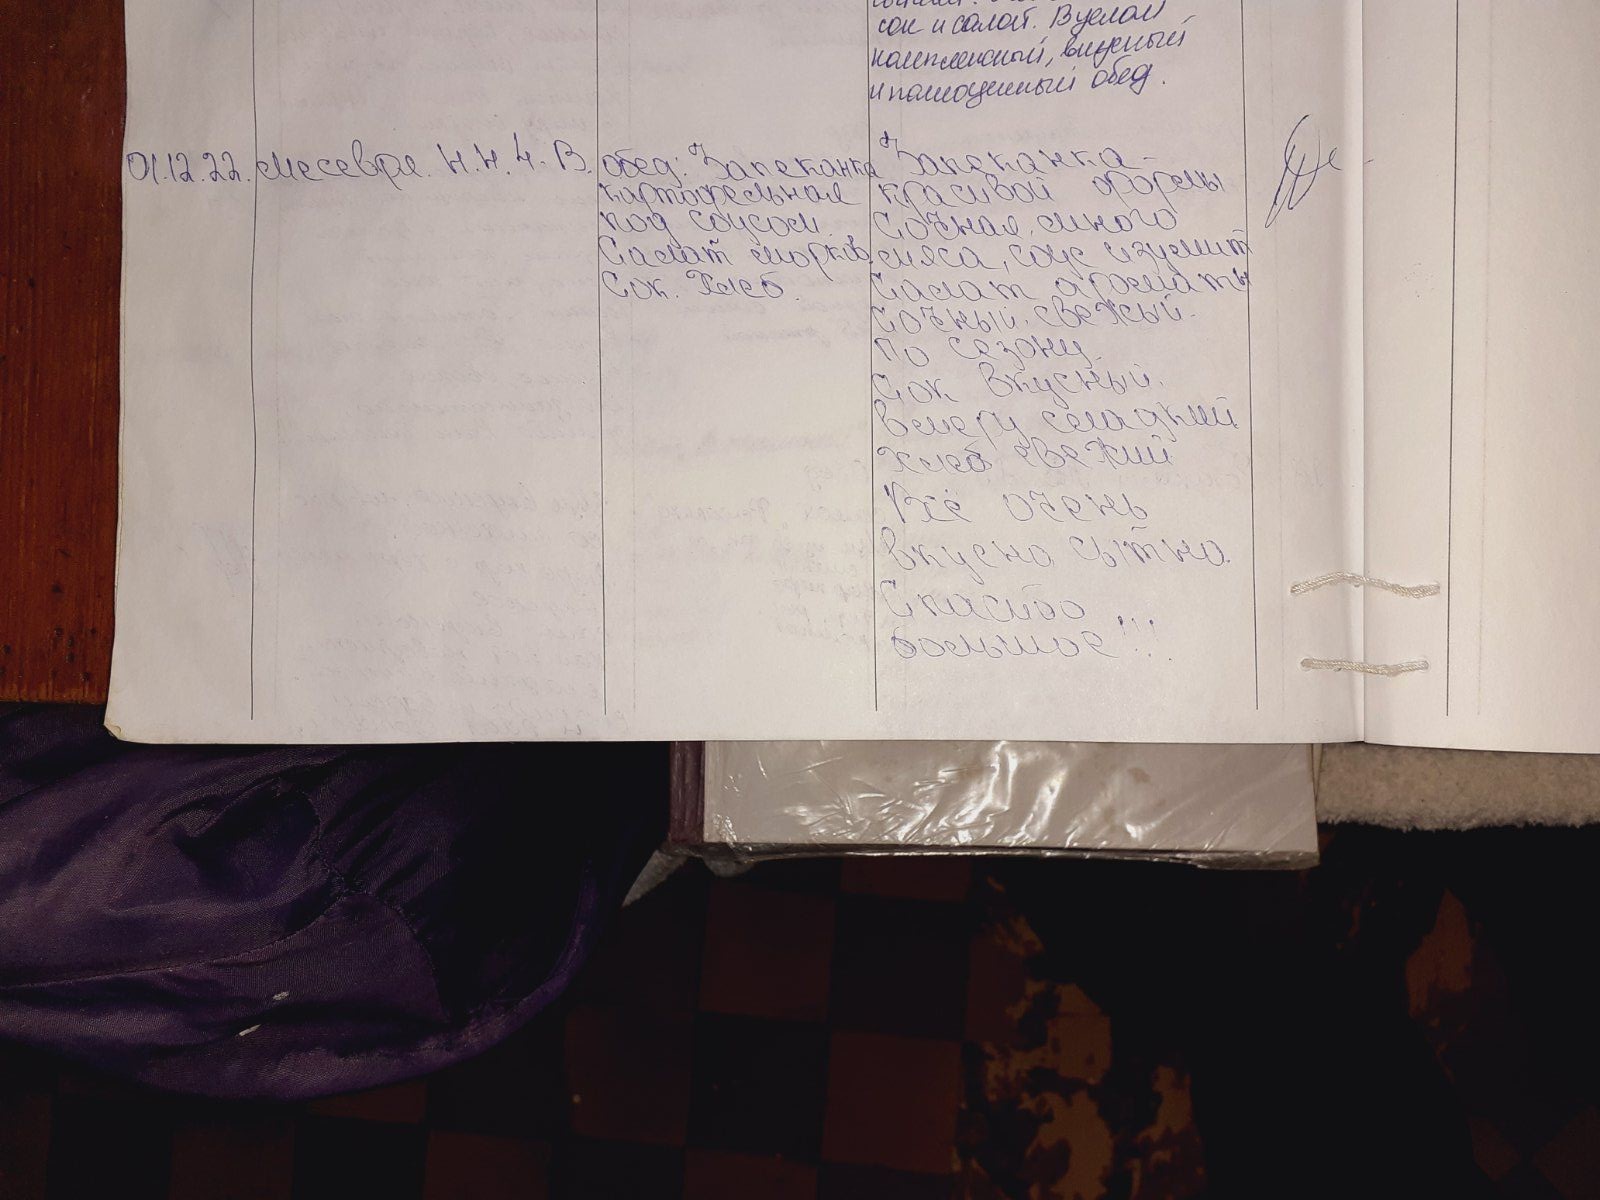 сок и салат. В целом
комплексный, вкусный
и полноценный обед.
01.12.22.
Н.Н. 4. В.
обед: Запеканка
картофельная
под соусом.
Салат морков.
Сок. Хлеб.
Запеканка -
красивой формы
Сочная, много
мяса, соус изумит
Салат ароматн
сочный, свежый.
по сезону.
Сок вкусный.
вмеру сладкий
Хлеб свежий
Всё очень
вкусно сытно.
Спасибо
большое!!!